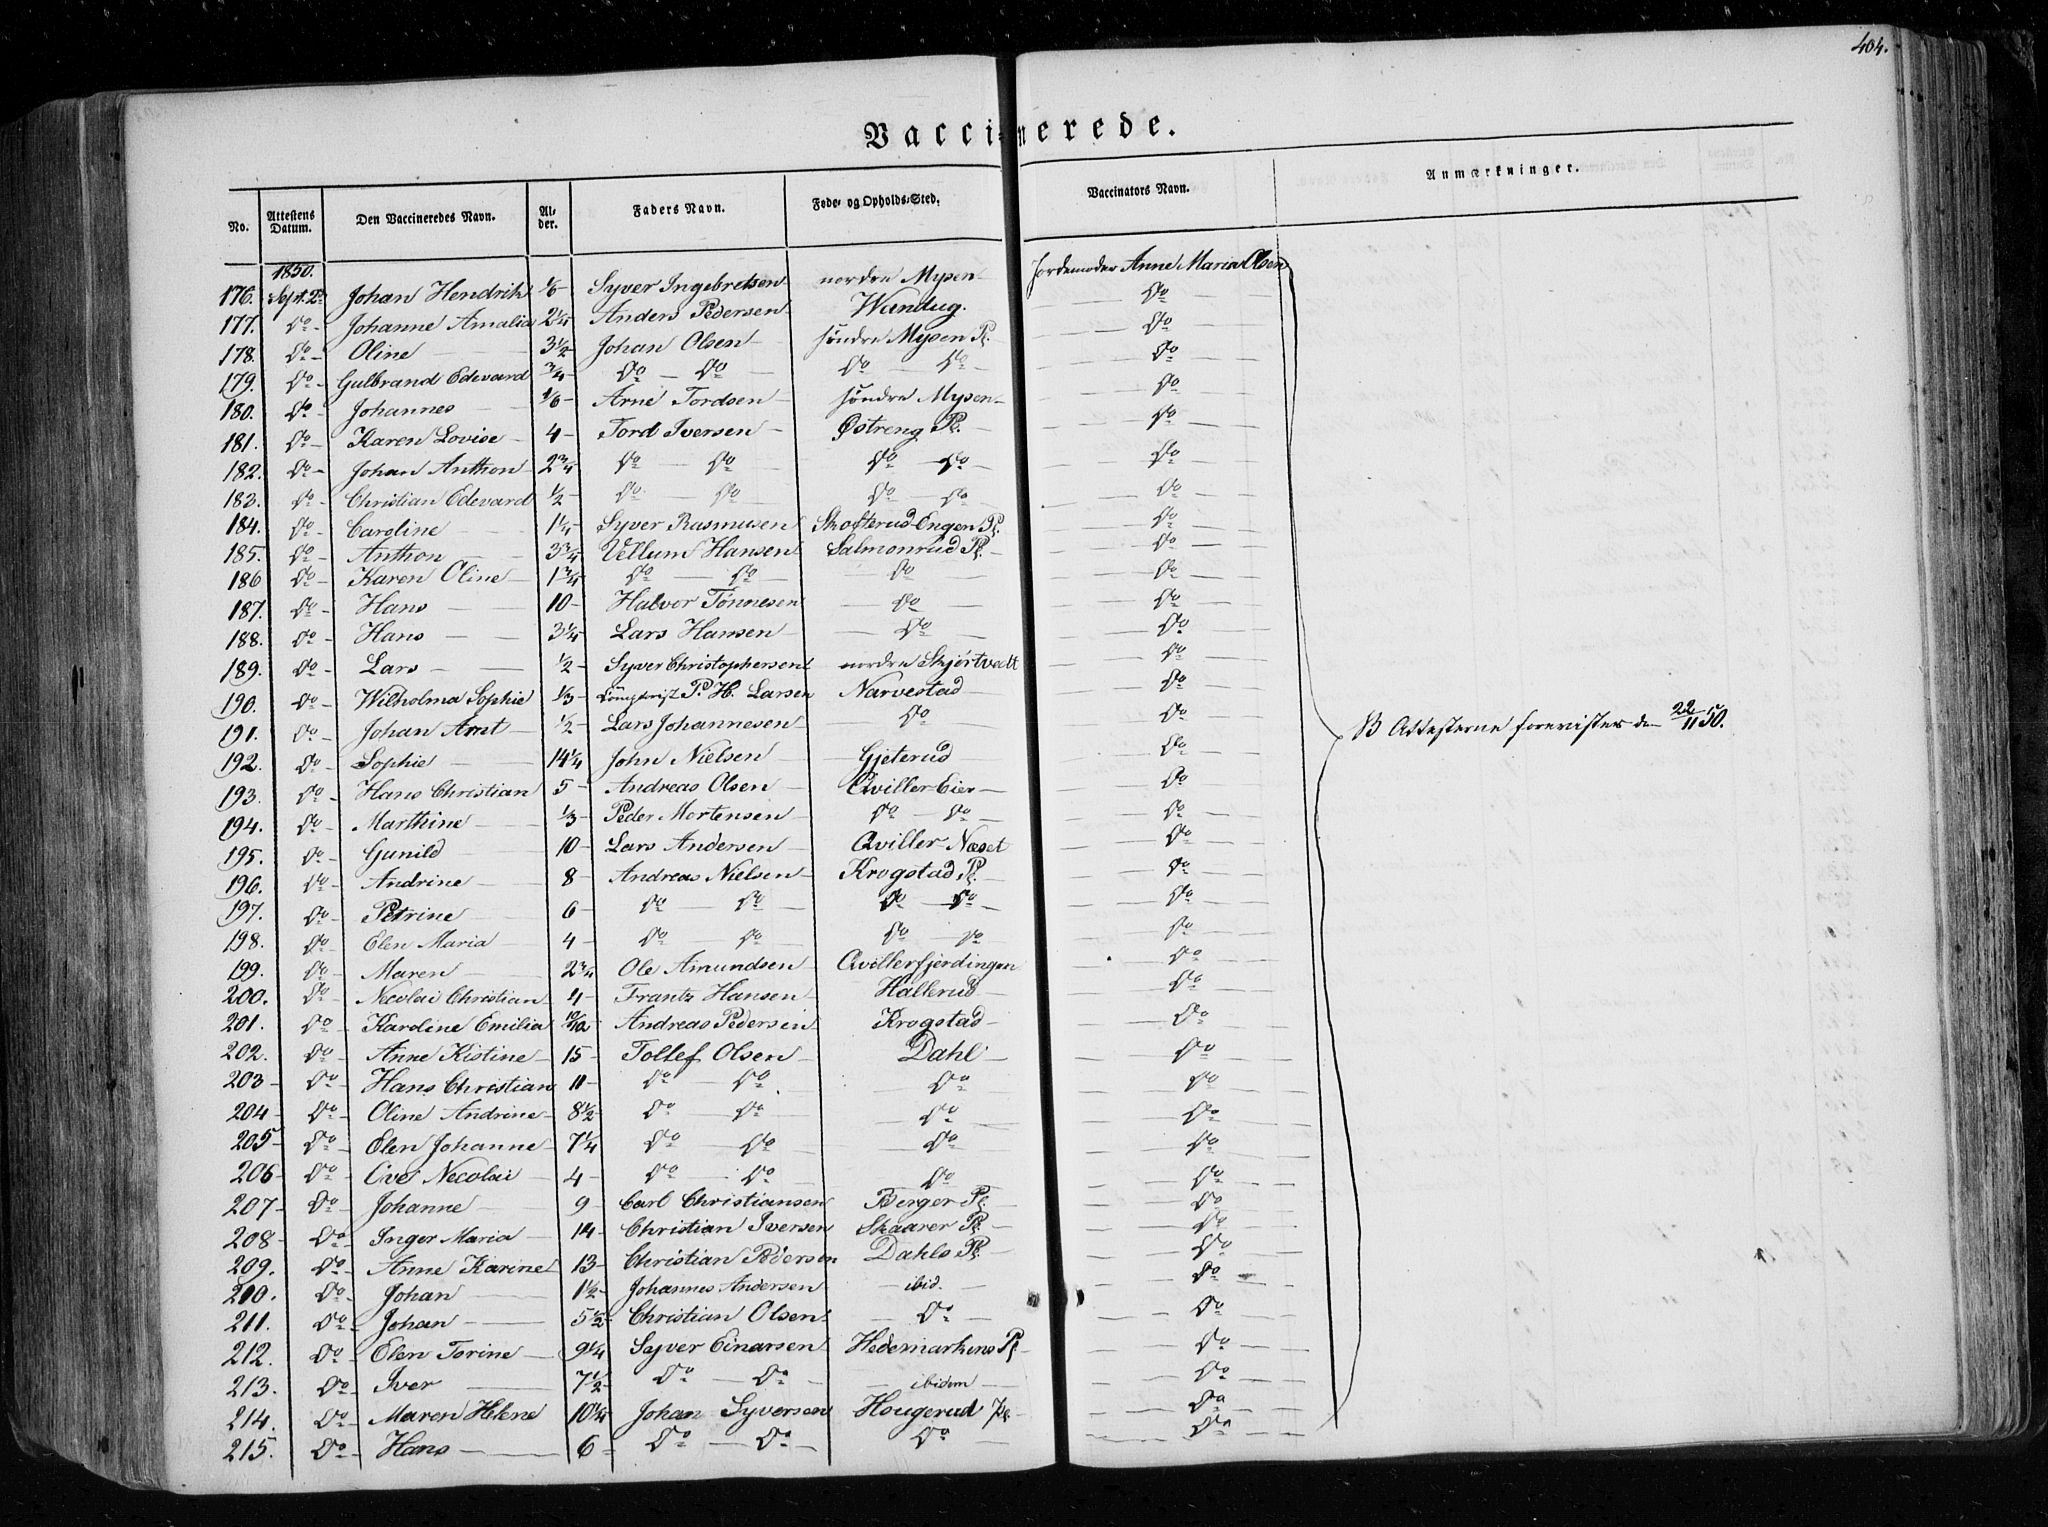 404.
Vaccinerede.
No. Attestens Datum. Den Vaccineredes Navn. Al-der. Faders Navn. Føde- og Opholds-Sted. Vaccinators Navn. Anmærkninger.
1850.
176. Sept. 2 Johan Hendrik 1/6 Syver Ingebretsen nordre Mysen Jordemoder Anne Maria Olsen
177. Do Johanne Amalia 2 1/4 Anders Pedersen Wandug. Do
178. Do Oline 3 1/2 Johan Olsen søndre Mysen Pl. Do
179. Do Gulbrand Edevard 3/4 Do Do Do Do Do
180. Do Johannes 1/6 Arne Tordsen søndre Mysen Do
181. Do Karen Lovise 4 Tord Iversen Østreng Pl. Do
182. Do Johan Anthon 2 3/4 Do Do Do Do Do
183. Do Christian Edevard 1/2 Do Do Do Do Do
184. Do Caroline 1 1/4 Syver Rasmusen Skofterud Engen Pl. Do
185. Do Anthon 3 3/4 Vellum Hansen Salmonrud Pl. Do
186 Do Karen Oline 1 3/4 Do Do Do Do
187. Do Hans 10 Halvor Tönnesen Do Do
188. Do Hans 3 1/4 Lars Hansen Do Do
189. Do Lars 1/2 Syver Christophersen nordre Skjørtvedt Do
190. Do Wilholma Sophie 1/3 P. H. Larsen Narvestad Do
191. Do Johan Arnt 1/2 Lars Johannesen Do Do B Attesterne forevistes den 22/11 50.
192. Do Sophie 14 1/4 John Nielsen Gjeterud Do
193. Do Hans Christian 5 Andreas Olsen Qviller Eier Do
194. Do Marthine 1/3 Peder Mortensen Do Do Do
195. Do Gunild 10 Lars Andersen Qviller Næset Do
196. Do Andrine 8 Andreas Nielsen Krogstad Pl. Do
197. Do Petrine 6 Do Do Do Do Do
198. Do Elen Maria 4 Do Do Do Do Do
199. Do Maren 2 3/4 Ole Amundsen Qvillerfjerdingen Do
200. Do Necolai Christian 4 Frantz Hansen Hallerud Do
201. Do Karoline Emilia 10/12 Andreas Pedersen Krogstad Do
202. Do Anne Kistine 15 Tollef Olsen Dahl Do
203 Do Hans Christian 11 Do Do Do Do
204 Do Oline Andrine 8 1/2 Do Do Do Do
205 Do Elen Johanne 7 1/4 Do Do Do Do
206 Do Ove Necolai 4 Do Do Do Do
207 Do Johanne 9 Carl Christiansen Berger Pl. Do
208 Do Inger Maria 14 Christian Iversen Skaarer Pl. Do
209. Do Anne Karine 13 Christian Pedersen Dahls Pl. Do
210. Do Johan 1 1/2 Johannes Andersen ibid. Do
211. Do Johan 5 1/2 Christian Olsen Do Do
212. Do Elen Torine 9 1/4 Syver Einarsen Hedemarkens Pl Do
213. Do Iver 7 1/2 Do Do ibidem Do
214. Do Maren Helene 10 1/4 Johan Syversen Hougerud Pl. Do
215. Do Hans 6 Do Do Do Do